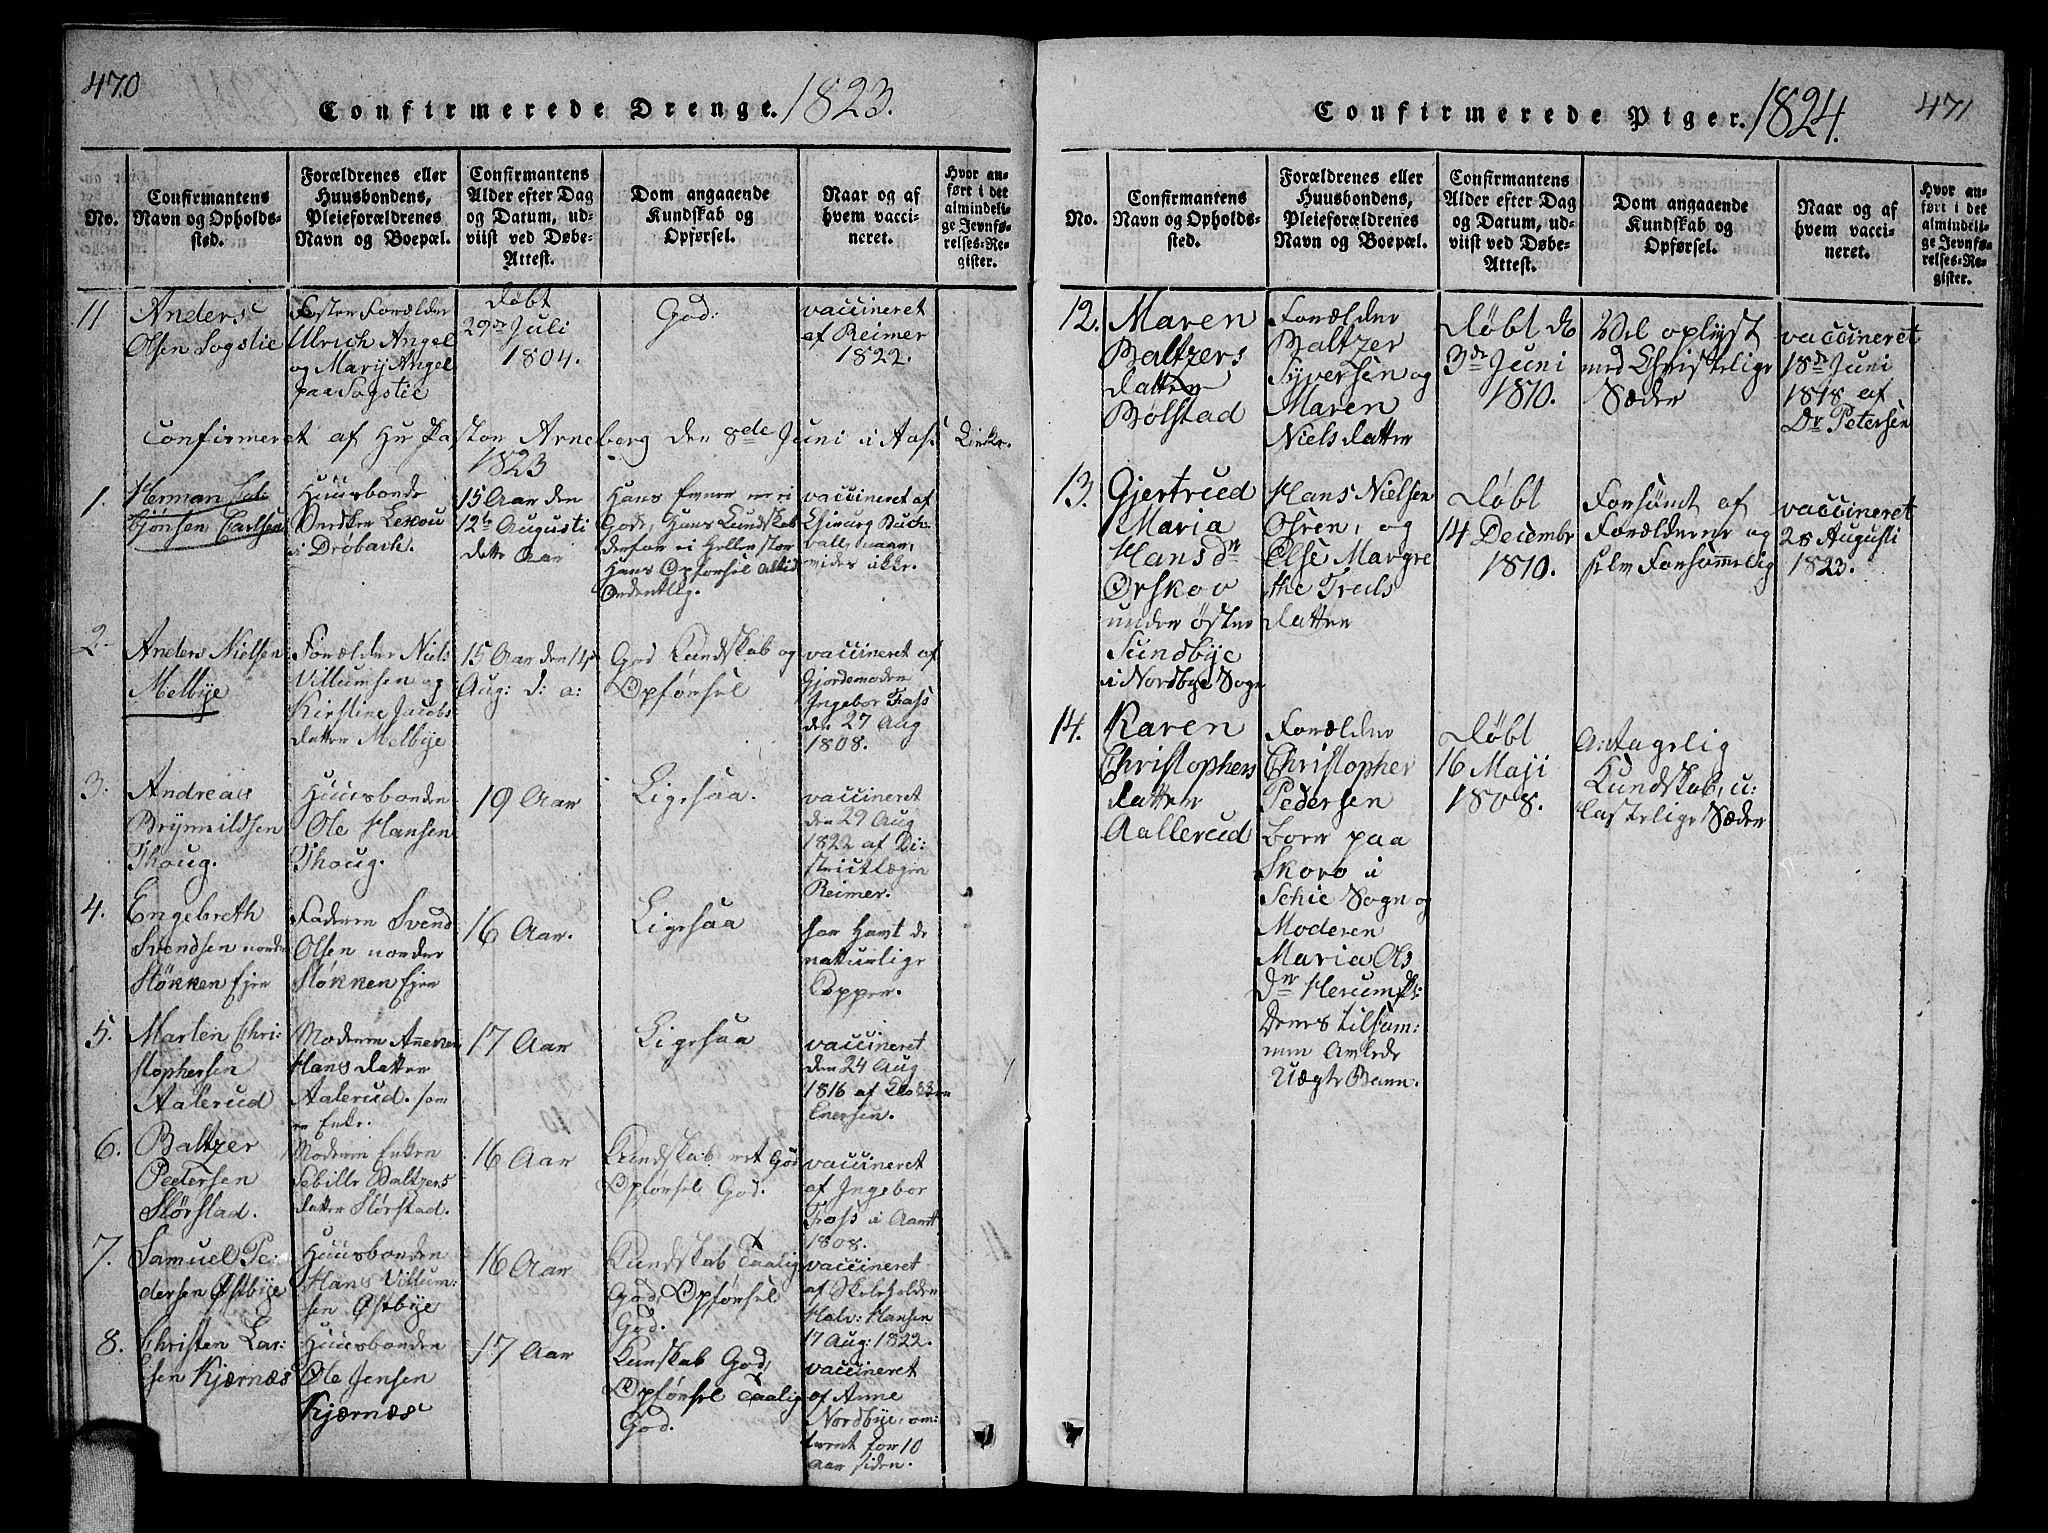 470
Confirmerede Drenge. 1823.
No.
Confirmantens
Navn og Opholds-
sted.
Forældrenes eller
Huusbondens,
Pleieforældrenes
Navn og Boepæl.
Confirmantens
Alder efter Dag
og Datum, ud-
viist ved Døbe-
Attest.
Dom angaaende
Kundskab og
Opførsel.
Naar og af
hvem vacci-
neret.
Hvor an-
ført i det
almindeli-
ge Jevnfø-
relses-Re-
gister.
11
Anders
Olsen Sogstie
Foster Forælder
Ulrich Angel
og Mary Angel
paa Sogstie
døbt
29de Juli
1804.
God:
vaccineret
af Reimer
1822.
Confirmeret af Hr Pastor Arneberg den 8de Juni i Aas Kirke.
1823
1.
Herman
bjørnsen Carlsen
Huusbonde
i Drøbach.
15 Aar den
12te Augusti
dette Aar
Hans Evner er ei
Gode, Hans Kundskab
derfor ei heller stor
Hans Opførsel altid
Ordentlig.
vaccineret af
naar,
vides ikke.
2.
Anders Nielsen
Melbye
Forælder Niels
Villumsen og
Kirstine Jacobs
datter Melbye
15 Aar den 14
Aug: d: a:
God Kundskab og
Opførsel
vaccineret af
Gjordemoder
Ingebor Foss
den 27 Aug
1808.
3.
Andreas
Brynnildsen
Thoug.
Huusbonden
Ole Hansen
Thoug.
19 Aar
Ligesaa.
vaccineret
den 29 Aug
1822 af Di:
strictlægen
Reimer.
4.
Engebreth
Svendsen nordre
Støkken Ejer
Faderen Svend
Olsen nordre
Støkken Ejer
16 Aar.
Ligesaa
har havt de
naturlige
Copper.
5.
Marten Chri:
stophersen
Aalerud
Moderen Anne
Hans datter
Aalerud. som
er Enke.
17 Aar
Ligesaa
vaccineret
den 24 Aug
1816 af Klokker
Enersen.
6.
Baltzer
Pedersen
Størstad.
Moderen Enken
Sebille Baltzers
datter Størstad.
16 Aar
Kundskab ret God
Opførsel God.
vaccineret
af Ingebor
Foss i Aaret
1808.
7.
Samuel Pe:
dersen Østbye
Huusbonden
Hans Villum:
sen Østbye
16 Aar
Kundskab Taalig
God, Opførsel
God.
vaccineret
af Skoleholder
Halv: Hansen
17 Aug: 1822.
8.
Christen Lar:
sen Kjærnæs
Huusbonden
Ole Jensen
Kjærnæs
17 Aar
Kunskab God,
Opførsel Taalig
God.
vaccineret
af Anne
Nordbye, om:
trent for 10
Aar siden.
Confirmerede Piger. 1824.
471
No.
Confirmantens
Navn og Opholds-
sted.
Forældrenes eller
Huusbondens,
Pleieforældrenes
Navn og Boepæl.
Confirmantens
Alder efter Dag
og Datum, ud-
viist ved Døbe-
Attest.
Dom angaaende
Kundskab og
Opførsel.
Naar og af
hvem vacci-
neret.
Hvor an-
ført i det
almindeli-
ge Jevnfø-
relses-Re-
gister.
12.
Maren
Baltzers
datter
Bølstad
Forælder
Baltzer
Syversen og
Maren
Niels datter
Døbt
3de Juni
1810.
Vel oplyst
med Christelige
Sæder
vaccineret
18de Juni
1818 af
Dr Petersen
13.
Gjertrud
Maria
Hans dr
Ørskov
under øster
Sundbye
i Nordbye Sogn
Hans Nielsen
Osren, og
Else Margre
the Trels
datter
Døbt
14 Decembr
1810.
Forsømt af
Forælderne og
selv Forsømmelig
vaccineret
28 Augusti
1823.
14.
Karen
Christophers
datter
Aallerud
Forælder
Christopher
Pedersen
boer paa
Skoro i
Schie Sogn og
Moderen
Maria Ols
dr Herum
Deres tilsam:
men Avlede
Uægte Barn.
Døbt
16 Maji
1808.
Antagelig
Kundskab, u:
lastelige Sæder